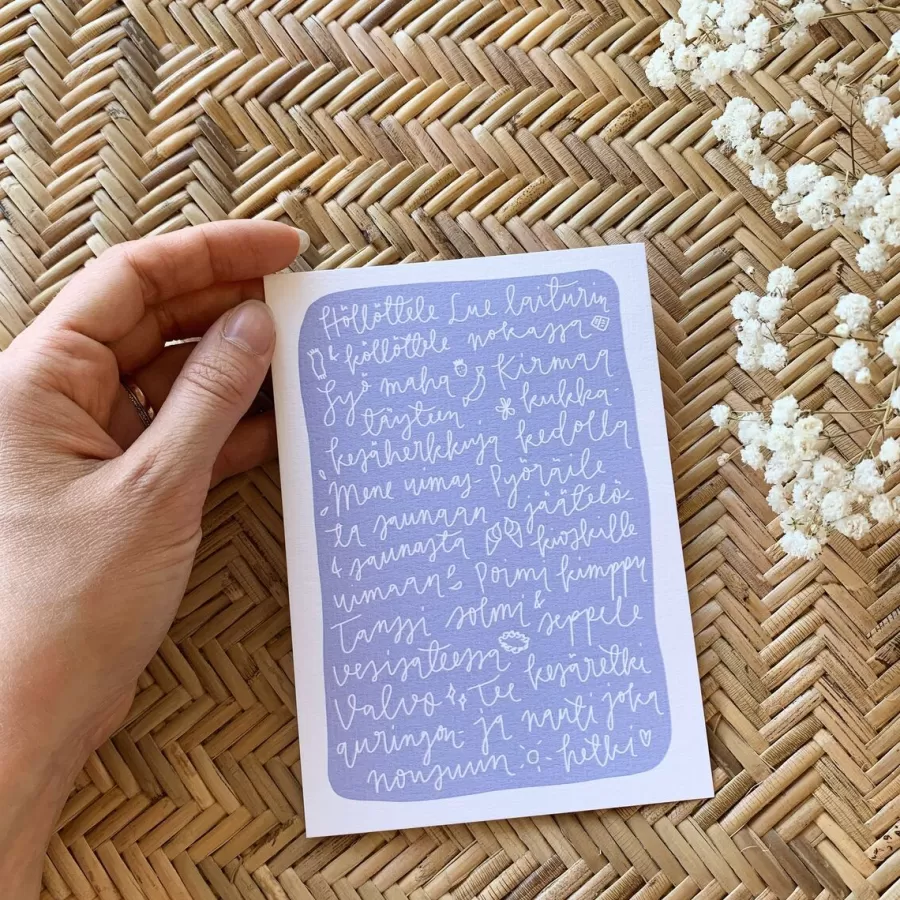 Höllöttele Lue laiturin
& köllöttele nokassa
Syö maha Kirmaa
täyteen kukka-
kesäherkkuja kedolla
Mene uimas- Pyöräile
ta saunaan jäätelö-
& saunasta kioskille
uimaan Poimi kimppu
Tanssi solmi & seppele
vesisateessa
Valvo Tee kesäretki
auringon- ja nauti joka
nousuun hetki